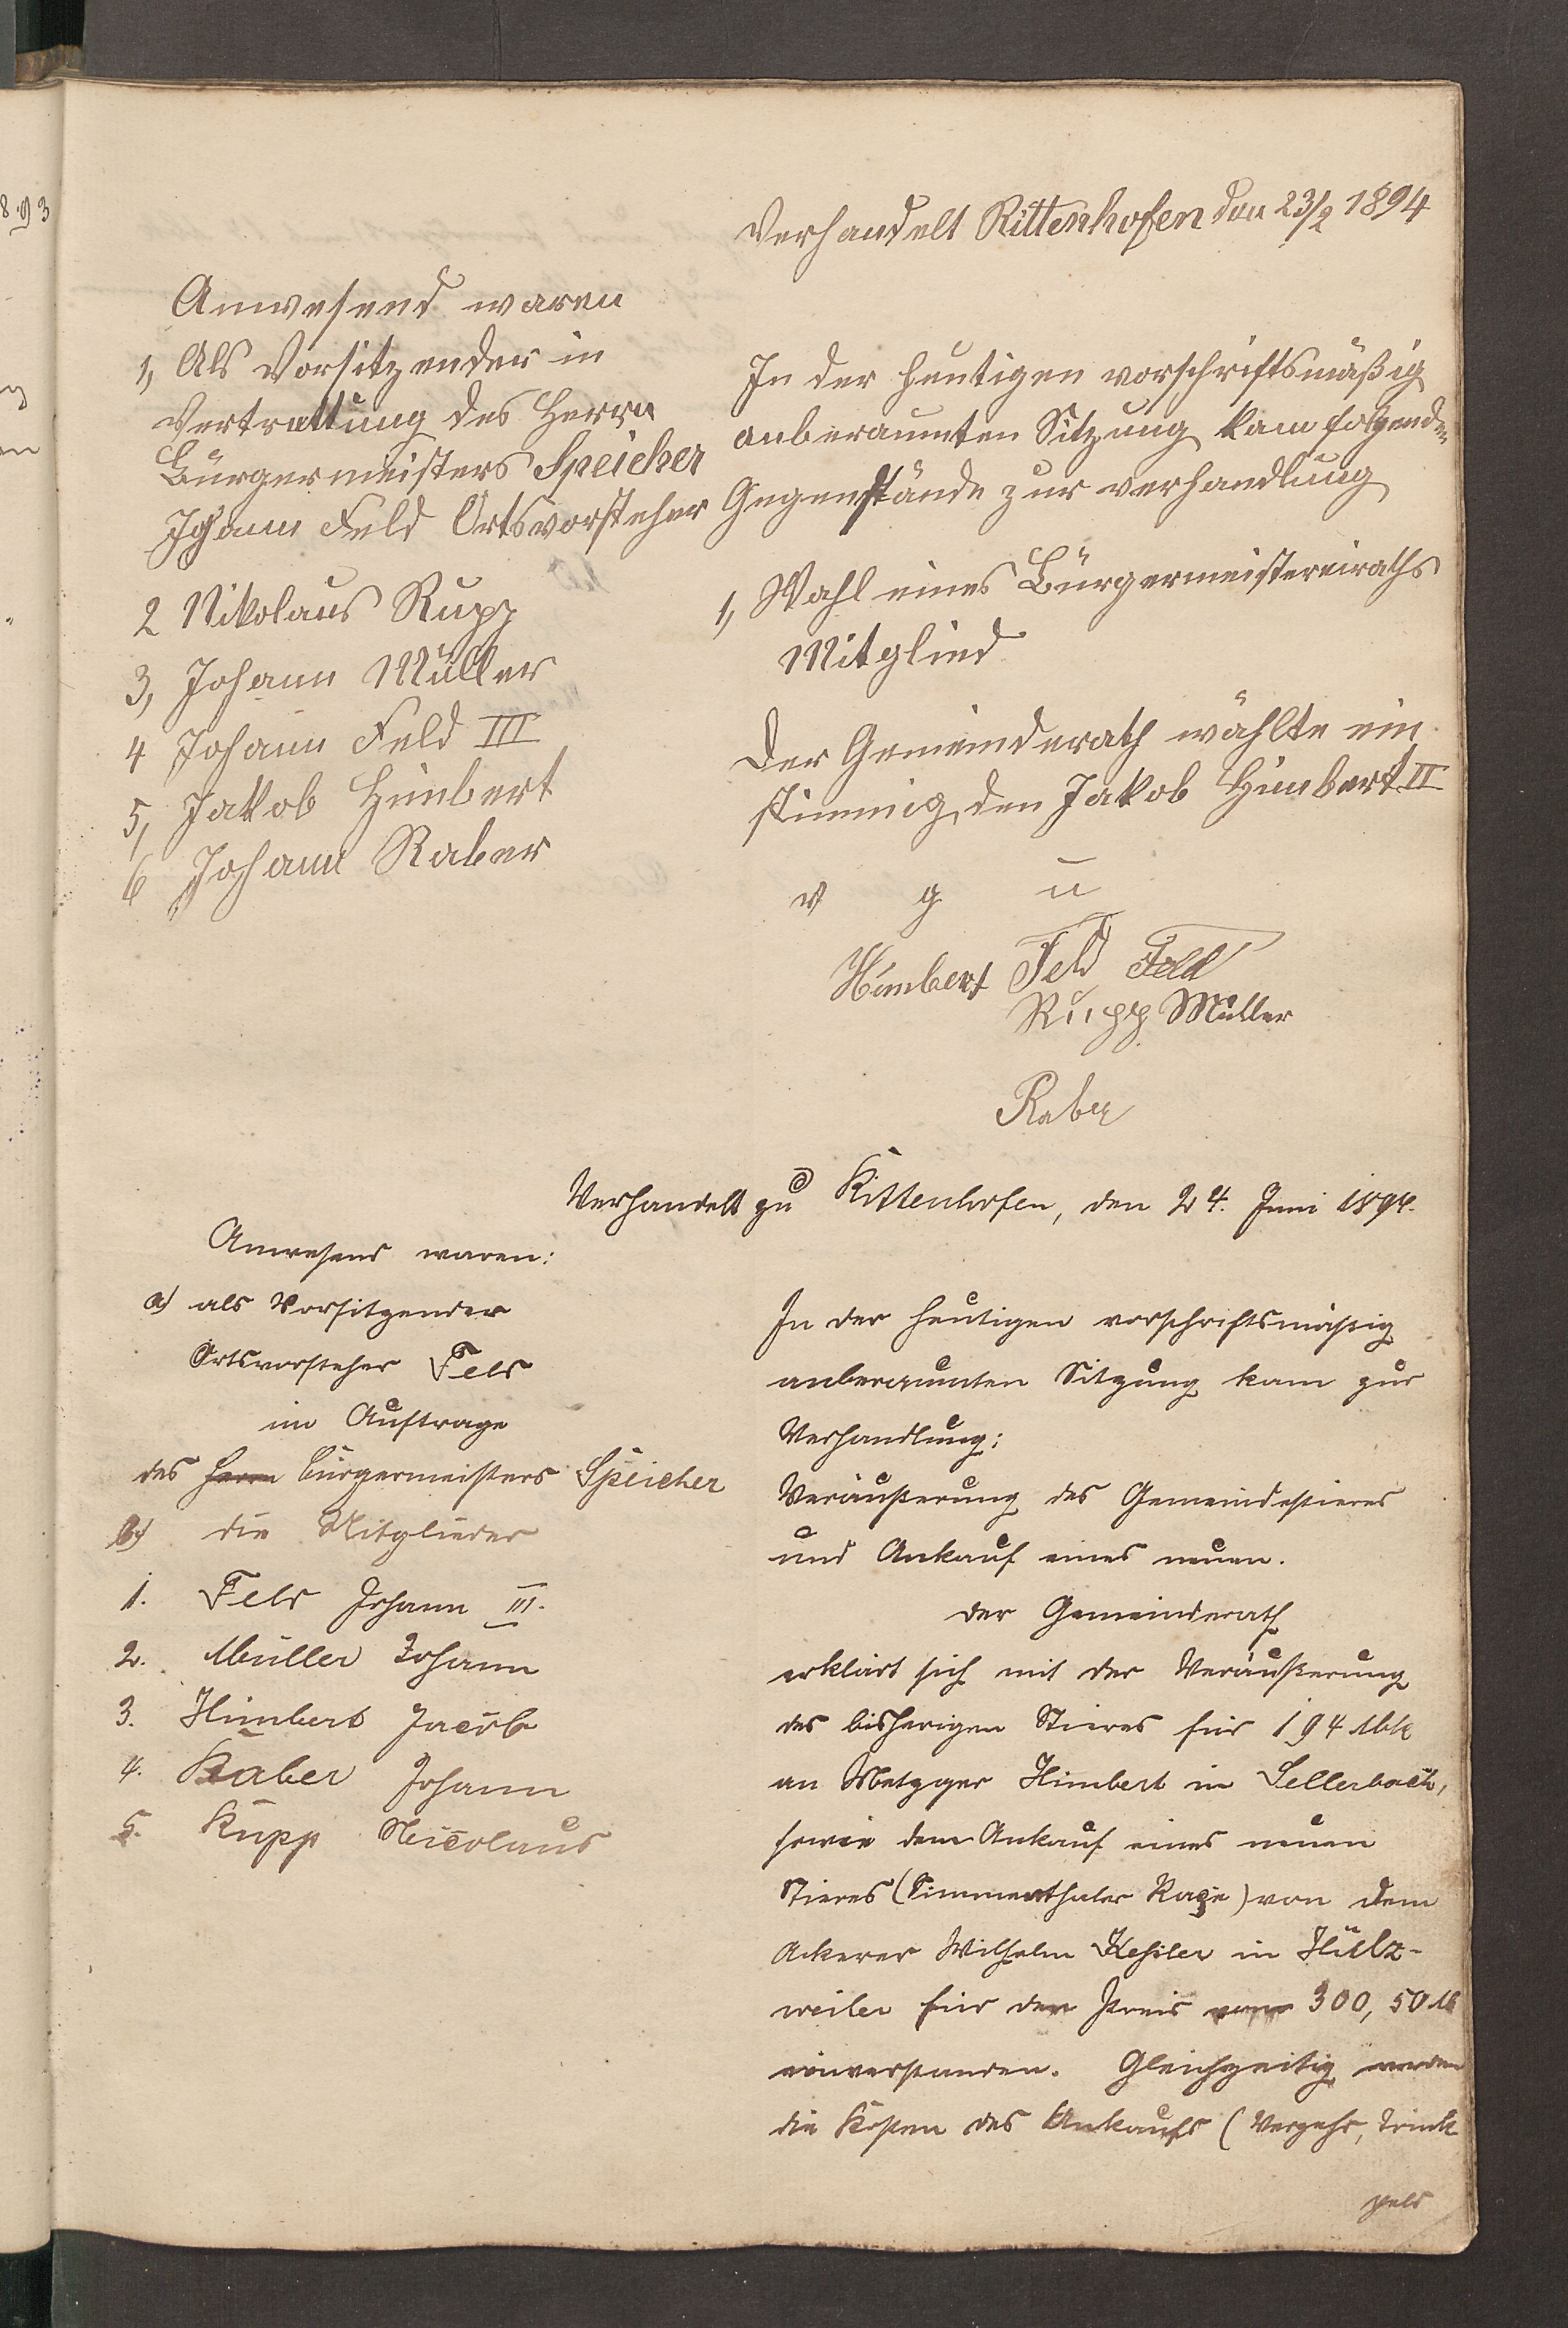 Verhandelt Rittenhofen den 23/2 1894
Anwesend waren
1, Als Vorsitzender in
Vertrettung des Herrn
Bürgermeisters Speicher
Johann Feld Ortsvorsteher
2 Nikolaus Rupp
3, Johann Müller
4 Johann Feld III
5, Jakob Himbert
6 Johann Raber
In der heutigen vorschriftsmäßig
anberaumten Sitzung kam folgenden
Gegenstände zur verhandlung
1, Wahl eines Bürgermeistereiraths
Mitglied
Der Gemeinderath wählte ein
stimmig den Jakob Himbert II
v g u
Himbert Feld Feld
Rupp Müller
Raber
Verhandelt zu Rittenhofen, den 24. Juni 1894.
Anwesend waren:
a) als Vorsitzender
Ortsvorsteher Feld
im Auftrage
des Herrn Bürgermeisters Speicher
b) die Mitglieder
1. Feld Johann III.
2. Müller Johann
3. Himbert Jacob
4. Raber Johann
5. Rupp Nicolaus
In der heutigen vorschriftsmäßig
anberaumten Sitzung kam zur
Verhandlung:
Veräußerung des Gemeindestieres
und Ankauf eines neuen.
Der Gemeinderath
erklärt sich mit der Veräußerung
des bisherigen Stieres für 194 Mk
an Metzger Himbert in Sellerbach,
sowie dem Ankauf eines neuen
Stieres (Simmenthaler Raçe) von dem
Ackerer Wilhelm in Hülz-
weiler für den Preis von 300,50 M
einverstanden. Gleichzeitig werden
die Kosten des Ankaufs (Verzehr, Trink
geld